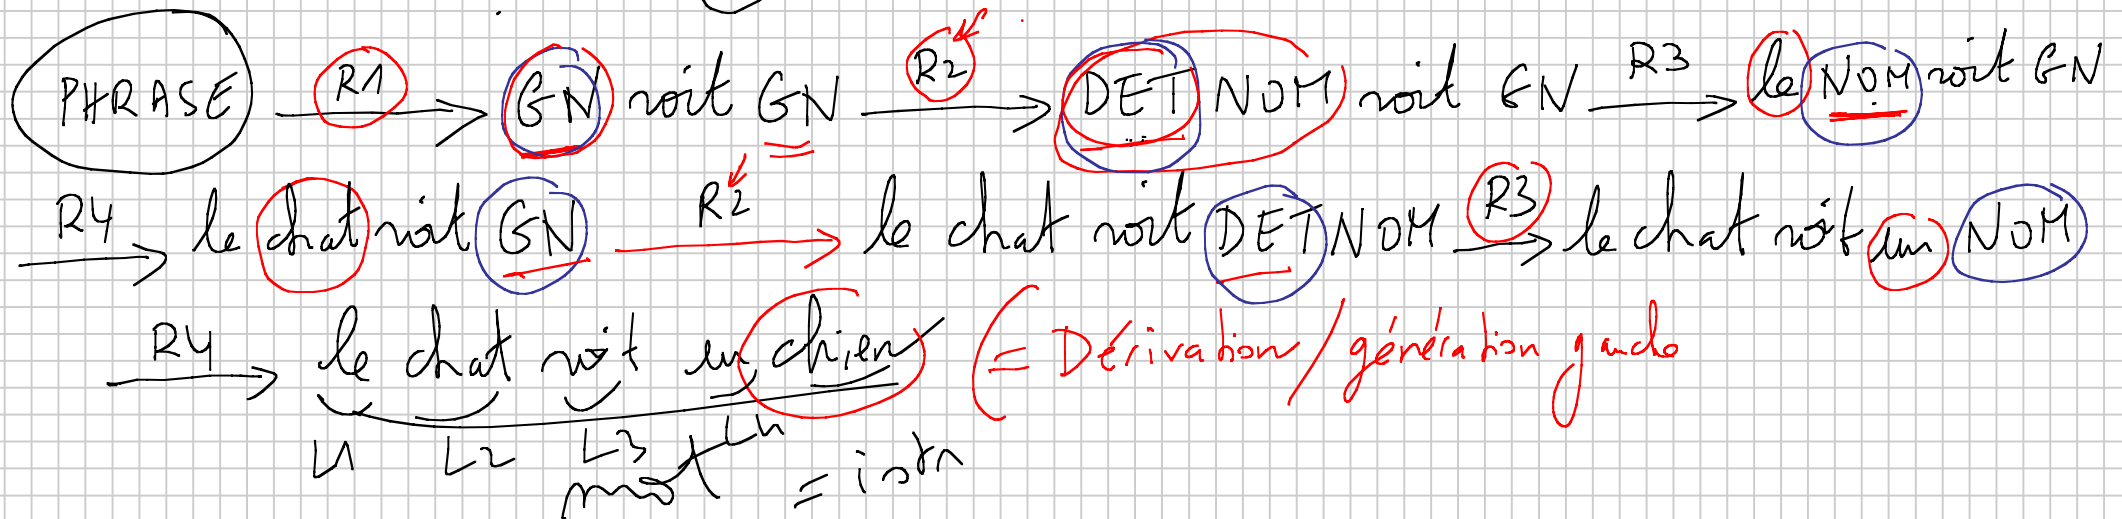 PHRASE R1 GN voit GN R2 DET NOM voit GN R3 le NOM voit GN
R4 le chat voit GN R2 le chat voit DET NOM R3 le chat voit un NOM
R4 le chat voit un chien (= Dérivation/génération gauche
L1 L2 L3 L4
mot = istr